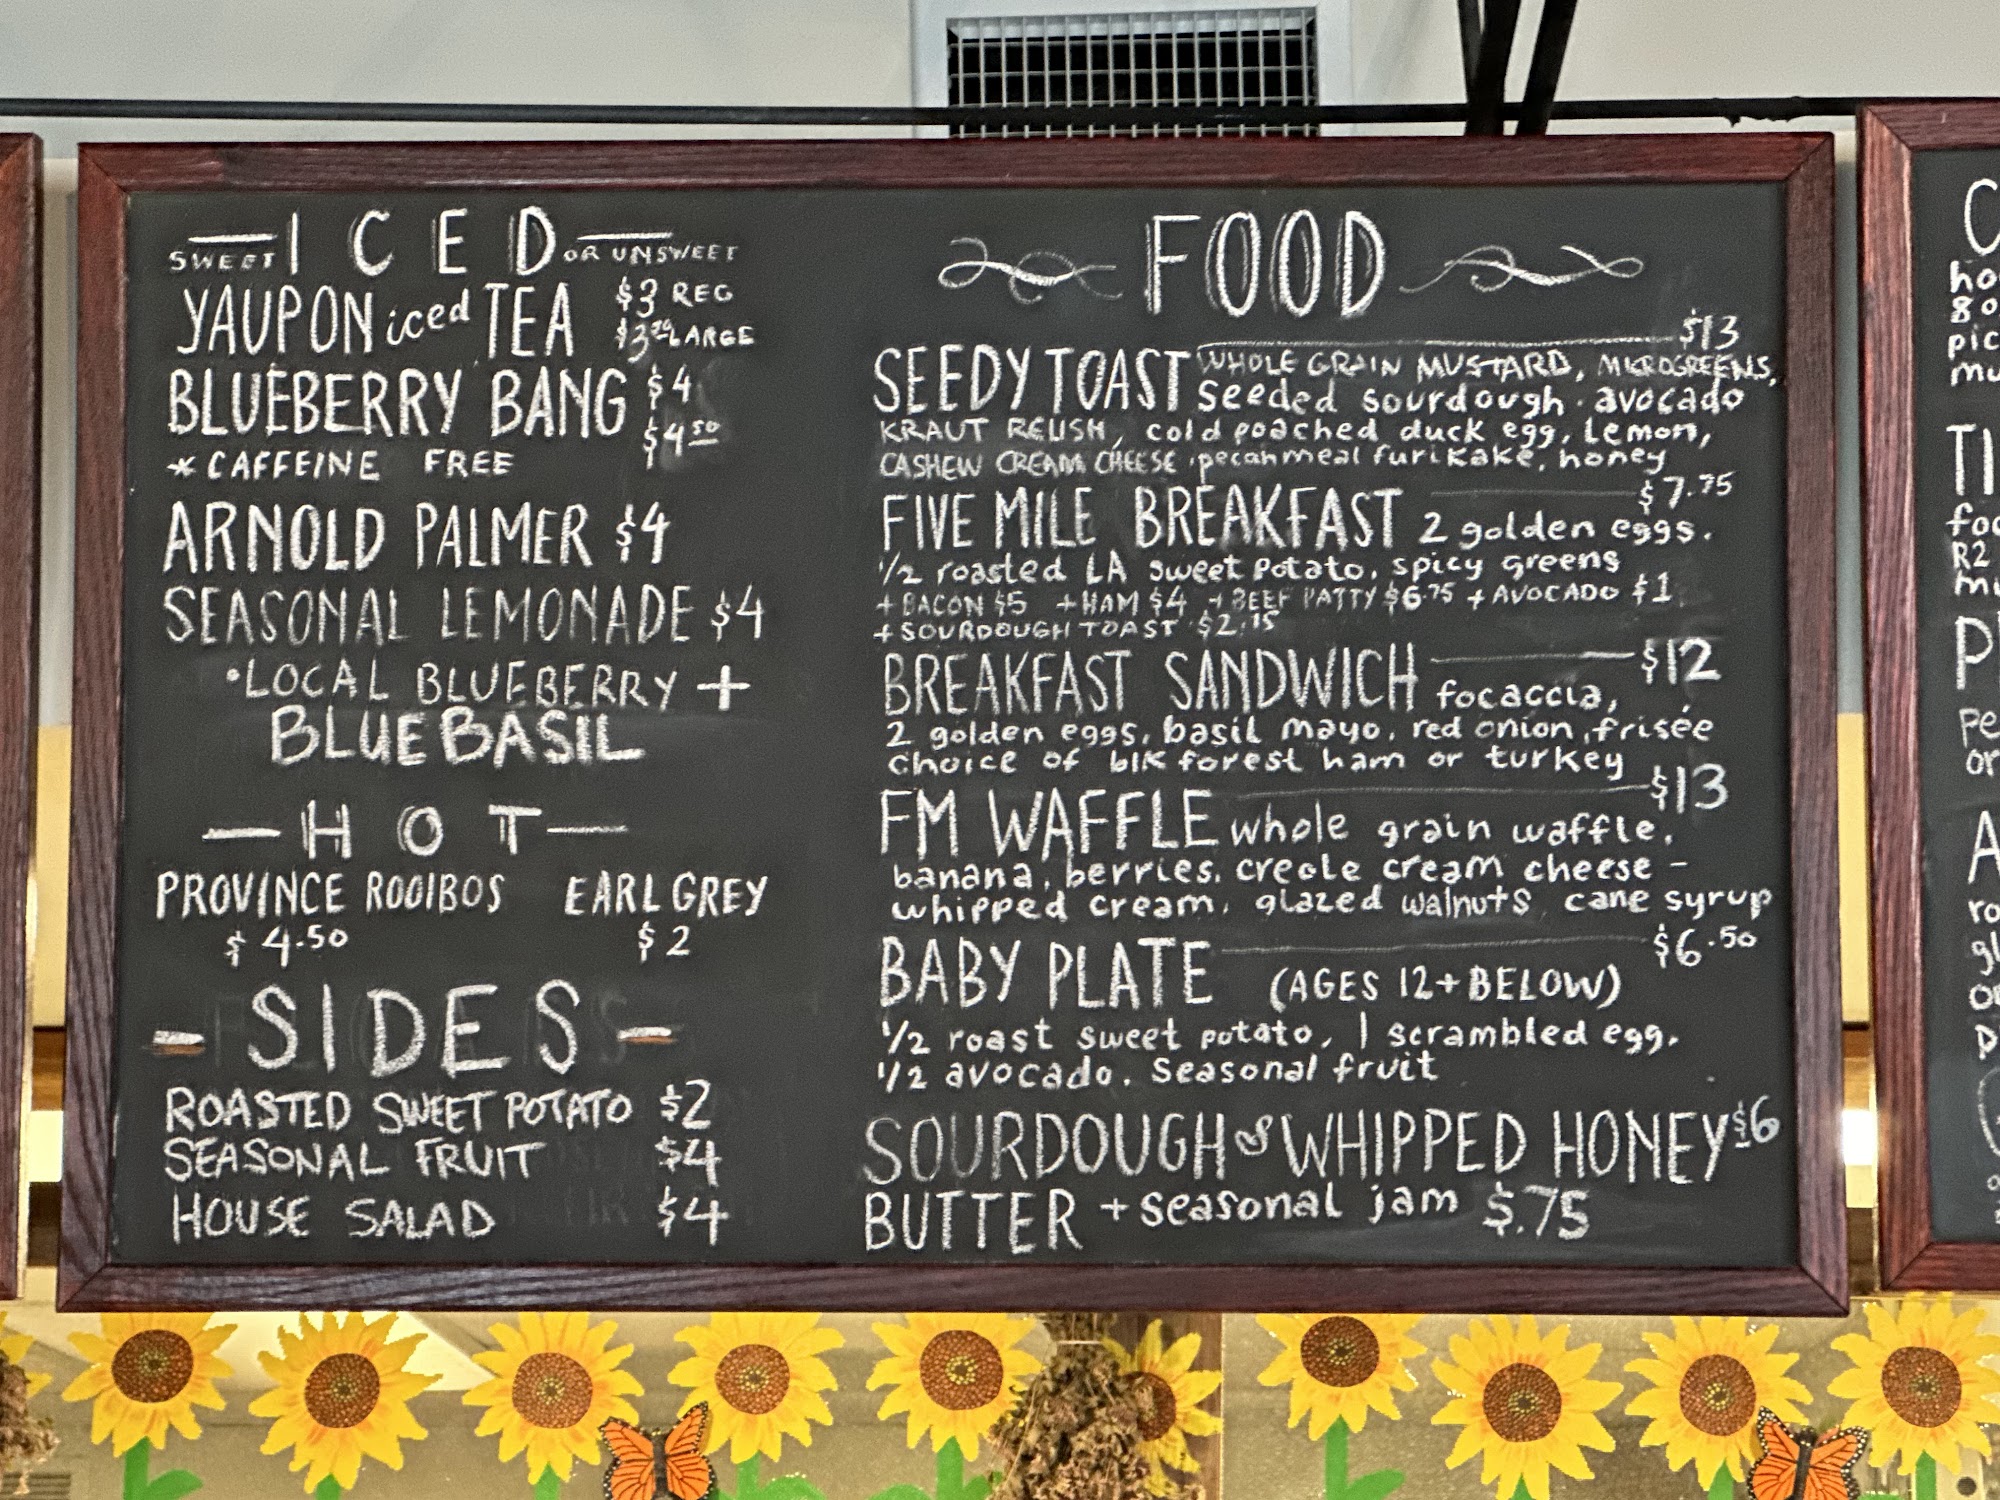 SWEET ICED OR UNSWEET
YAUPON iced TEA $3 REG
LARGE
BLUEBERRY BANG $4
$4.50
* CAFFEINE FREE
ARNOLD PALMER $4
SEASONAL LEMONADE $4
•LOCAL BLUEBERRY +
BLUE BASIL
HOT
PROVINCE ROOIBOS EARL GREY
$4.50 $2
- SIDES -
ROASTED SWEET POTATO $2
SEASONAL FRUIT $4
HOUSE SALAD $4
FOOD
$13
SEEDY TOAST WHOLE GRAIN MUSTARD, MICROGREENS,
seeded sourdough. avocado
KRAUT RELISH, cold poached duck egg, lemon,
CASHEW CREAM CHEESE, pecan meal furikake, honey
$7.75
FIVE MILE BREAKFAST 2 golden eggs.
1/2 roasted LA sweet potato, spicy greens
+ BACON $5 + HAM $4 + BEEF PATTY $6.75 + AVOCADO $1
+ SOURDOUGH TOAST $2.15
BREAKFAST SANDWICH $12
focaccia,
2 golden eggs, basil mayo, red onion, frisée
choice of blk forest ham or turkey
$13
FM WAFFLE whole grain waffle,
banana, berries, creole cream cheese -
whipped cream, glazed walnuts, cane syrup
$6.50
BABY PLATE (AGES 12 + BELOW)
1/2 roast sweet potato, 1 scrambled egg,
1/2 avocado, seasonal fruit
SOURDOUGH & WHIPPED HONEY $6
BUTTER + seasonal jam $.75
ho
80
pic
mu
TI
foc
R2
mu
pe
or
A
ro
gl